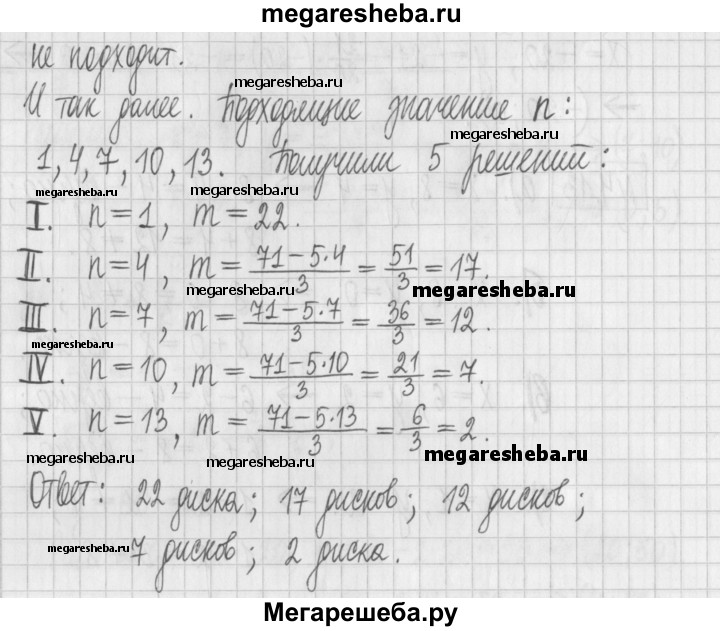 megaresheba.ru
не подходит.
megaresheba.ru
И так далее. Подходящие значение n:
megaresheba.ru
1, 4, 7, 10, 13. Получили 5 решений:
megaresheba.ru megaresheba.ru
I. n = 1, m = 22.
II. n = 4, m = \frac{71 - 5·4}{3} = \frac{51}{3} = 17.
megaresheba.ru megaresheba.ru
III. n = 7, m = \frac{71 - 5·7}{3} = \frac{36}{3} = 12.
megaresheba.ru
IV. n = 10, m = \frac{71 - 5·10}{3} = \frac{21}{3} = 7.
V. n = 13, m = \frac{71 - 5·13}{3} = \frac{6}{3} = 2.
megaresheba.ru megaresheba.ru megaresheba.ru
Ответ: 22 диска; 17 дисков; 12 дисков;
megaresheba.ru 7 дисков; 2 диска.
Мегарешеба.ру